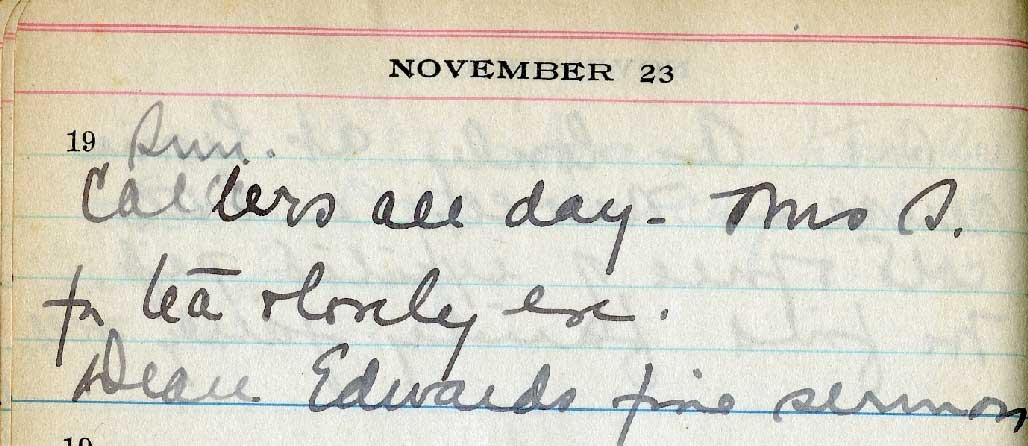 NOVEMBER 23
19 Sun.
Callers all day - Mrs S.
for tea & lovely eve.
Dean Edwards fine sermon
19